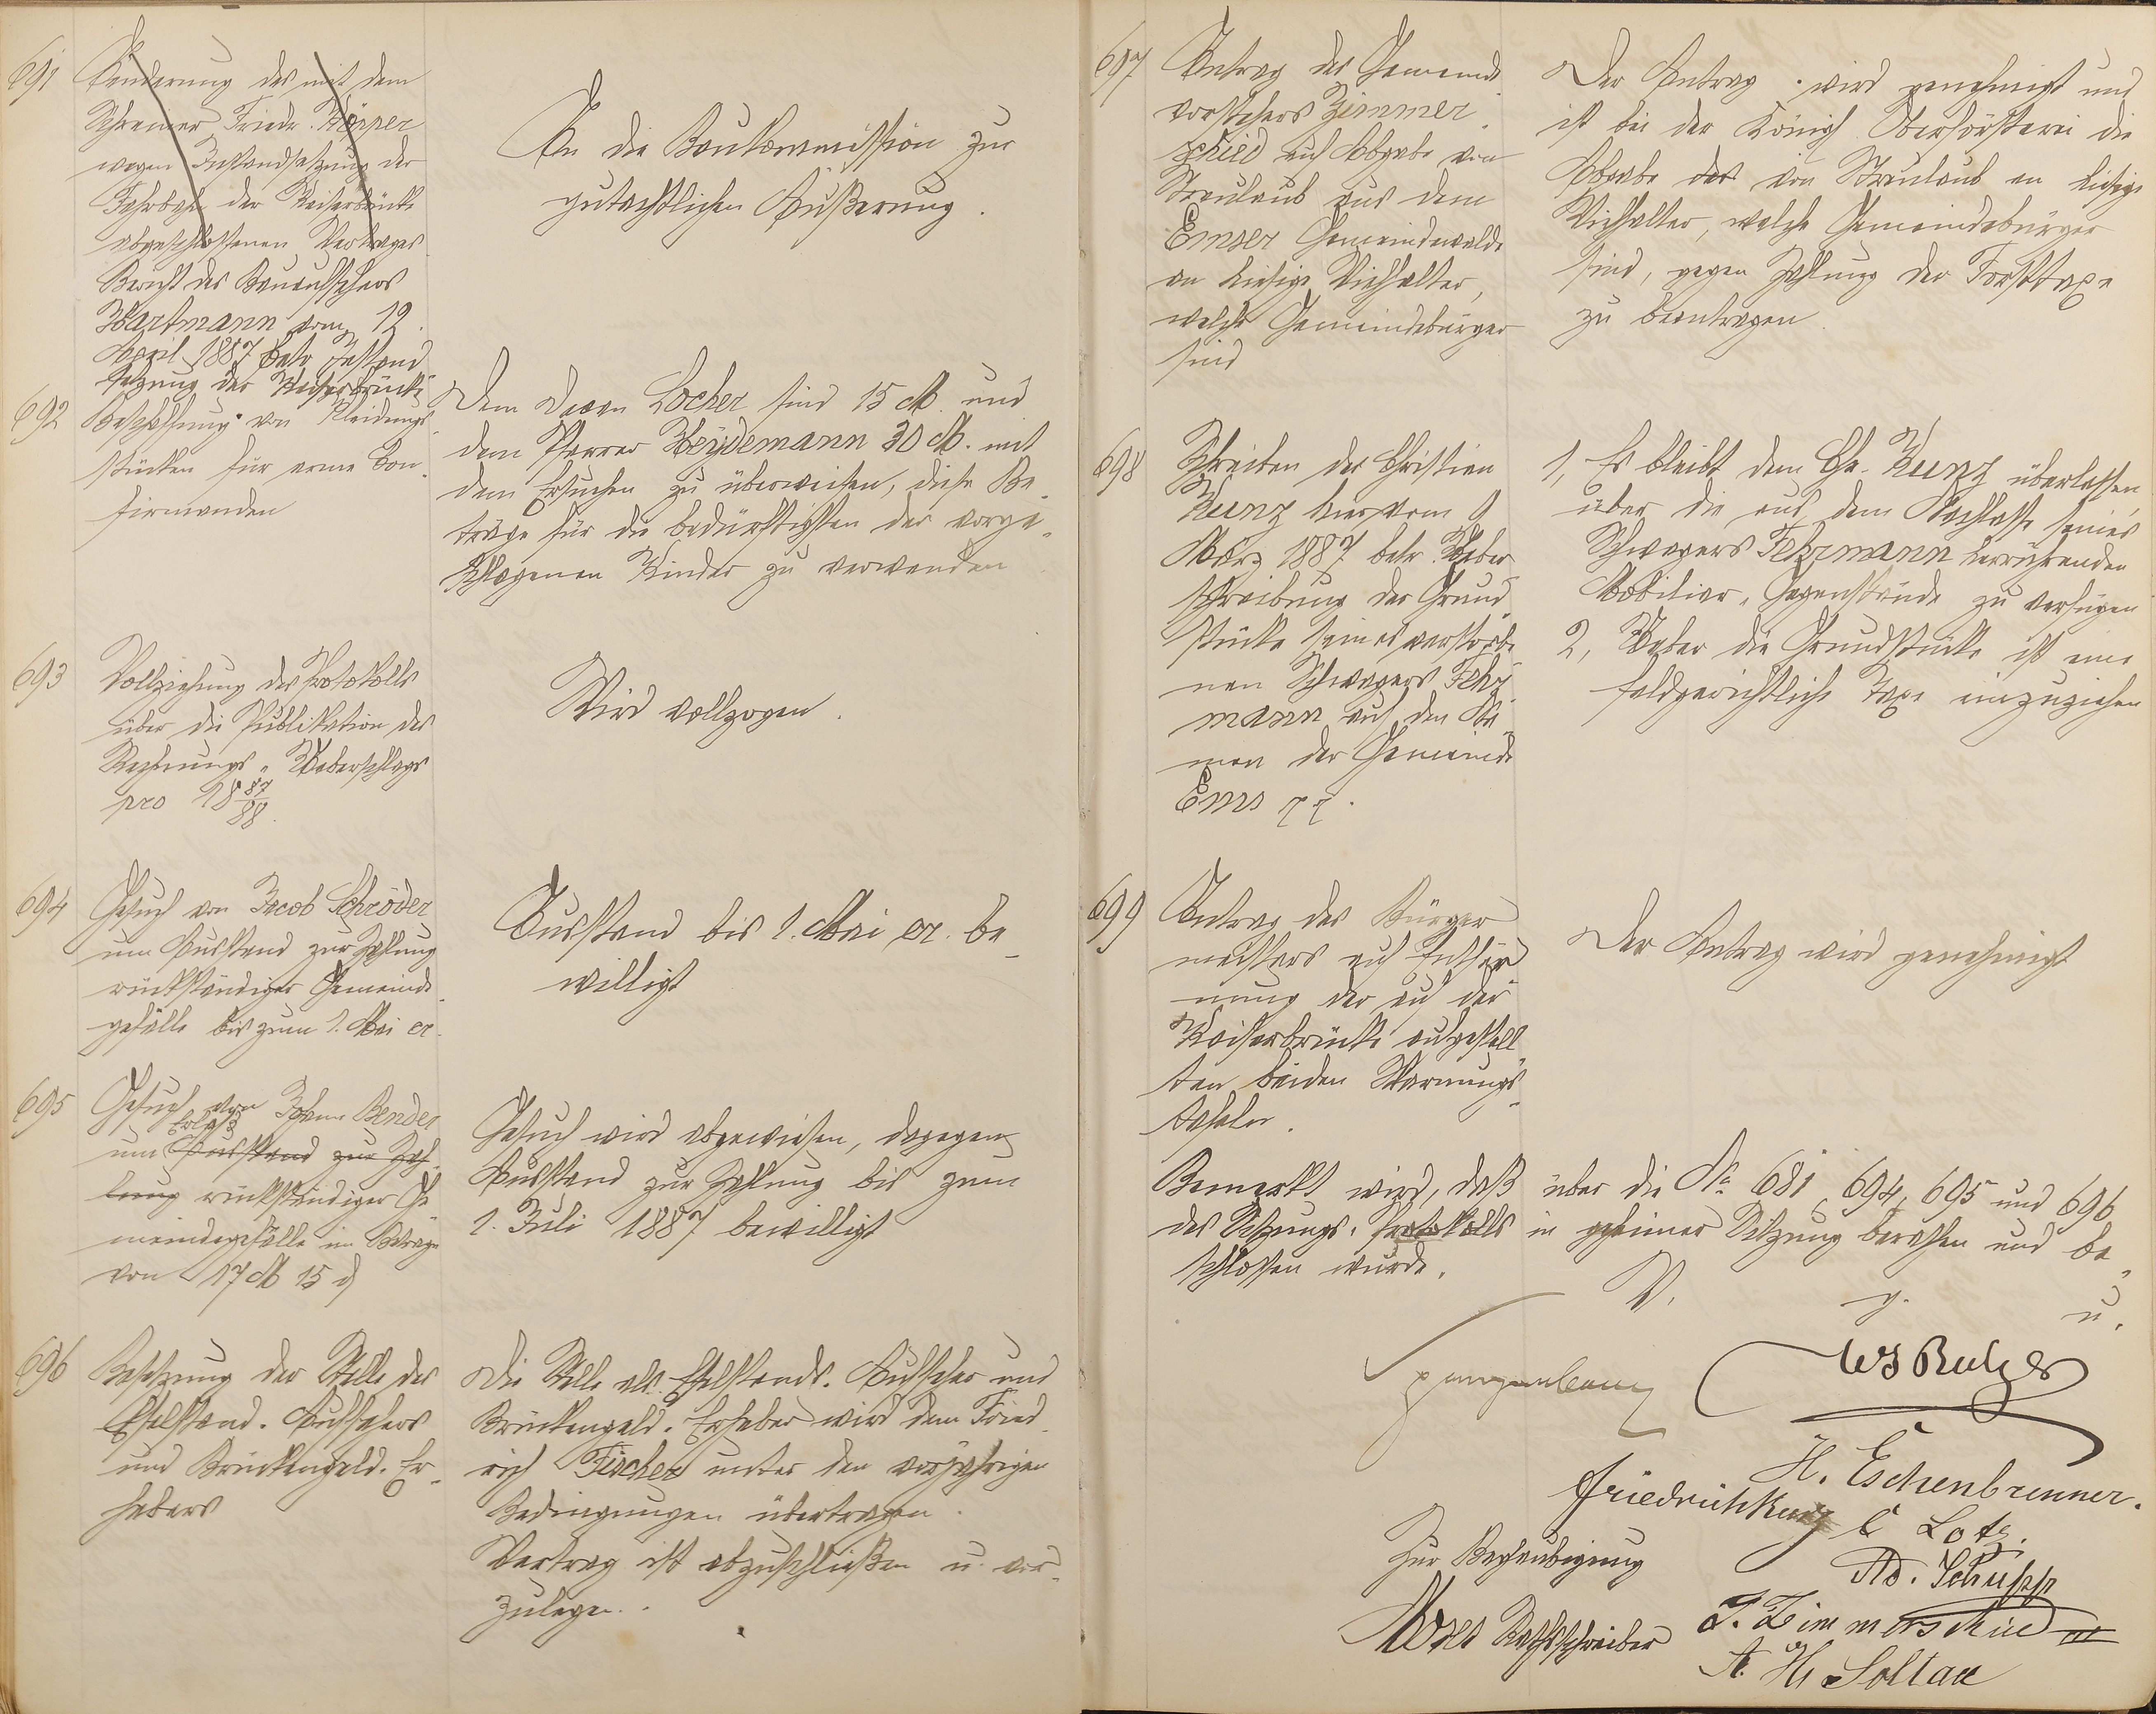 691
Aenderung des mit dem
Schreiner Friedr. Körper
wegen Instandsetzung der
Fahrbahn der Kaiserbrücke
abgeschlossenen Vertrages
Bericht des Bauaufsehers
Hartmann vom 12.
April 1887 betr Instand
setzung der Kaiserbrücke
An die Baukommission zur
gutachtlichen Äußerung.
692
Beschaffung von Kleidungs-
stücken für arme Con-
firmanden
Dem Decan Locher sind 15 M. und
dem Pfarrer Heydemann 30 M. mit
dem Ersuchen zu überweisen, diese Be-
träge für die bedürftigsten der vorge-
schlagenen Kinder zu verwenden
693
Vollziehung des Protokolls
über die Publikation des
Rechnungs-Ueberschlags
pro 18 87/88.
Wird vollzogen.
694
Gesuch von Jacob Schröder
um Ausstand zur Zahlung
rückständiger Gemeinde-
gefälle bis zum 1. Mai cr.
Ausstand bis 1. Mai cr. be-
willigt
695
Gesuch von Johann Bender
Erlaß
um Ausstand zur Zah-
lung rückständiger Ge-
meindegefälle im Betrage
von 17 M 15 d
Gesuch wird abgewiesen, dagegen
Ausstand zur Zahlung bis zum
1. Juli 1887 bewilligt
696
Besetzung der Stelle des
Eselstand-Aufsehers
und Brückengeld-Er-
hebers
Die Stelle als Eselstands-Aufseher und
Brückengeld-Erheber wird dem Fried-
rich Fischer unter den vorjährigen
Bedingungen übertragen.
Vertrag ist abzuschließen u. vor-
zulegen.
697
Antrag des Gemeinde-
vorstehers Zimmer-
schied auf Abgabe von
Streulaub aus dem
Emser Gemeindewalde
an hiesige Viehhalter,
welche Gemeindebürger
sind
Der Antrag wird genehmigt und
ist bei der Königl Oberförsterei die
Abgabe des von Streulaub an hiesige
Viehhalter, welche Gemeindebürger
sind, gegen Zahlung der Forsttaxe
zu beantragen.
698
Schreiben des Christian
Kunz hier vom 9
März 1887 betr. Ueber-
schreibung der Grund-
stücke seines verstorbe-
nen Schwagers Fehr-
mann auf den Na-
men der Gemeinde
Ems pp.
1, Es bleibt dem Chr. Kunz überlassen
über die aus dem Nachlasse seines
Schwagers Fehrmann herrührenden
Mobiliar-Gegenstände zu verfügen
2, Ueber die Grundstücke ist eine
feldgerichtliche Taxe einzuziehen
699
Antrag des Bürger-
meisters auf Entfer-
nung der auf der
Kaiserbrücke aufgestell-
ten beiden Warnungs-
tafeln.
Der Antrag wird genehmigt
Bemerkt wird, daß über die No 681, 694, 695 und 696
des Sitzungs-Protokolls in geheimer Sitzung berathen und be-
schlossen wurde.
V. g. u.
Spangenberg
H. Eschenbrenner.
Friedrich Kunz C Lotz.
Zur Beglaubigung
Ad. Schupp
Rathsschreiber
T. Zimmerschied
A. H. Soltau